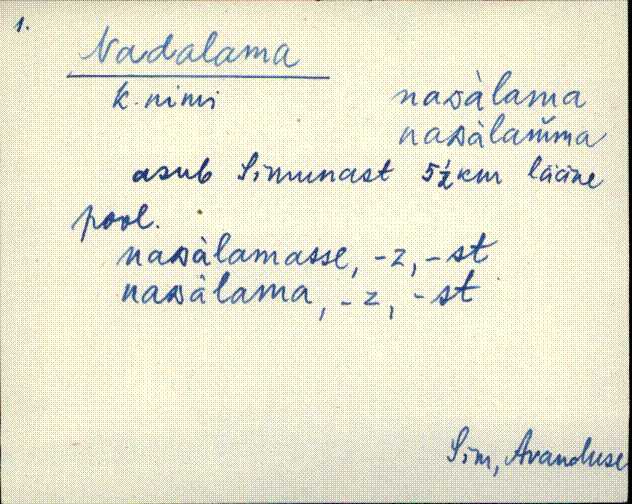 1.
Nadalama
k. nimi
naᴅàlama
naᴅàlam̆ma
asub Simunast 5½ km lääne
pool.
naᴅàlamasse, -z, -st
naᴅàlama, -z, -st
Sim, Avanduse